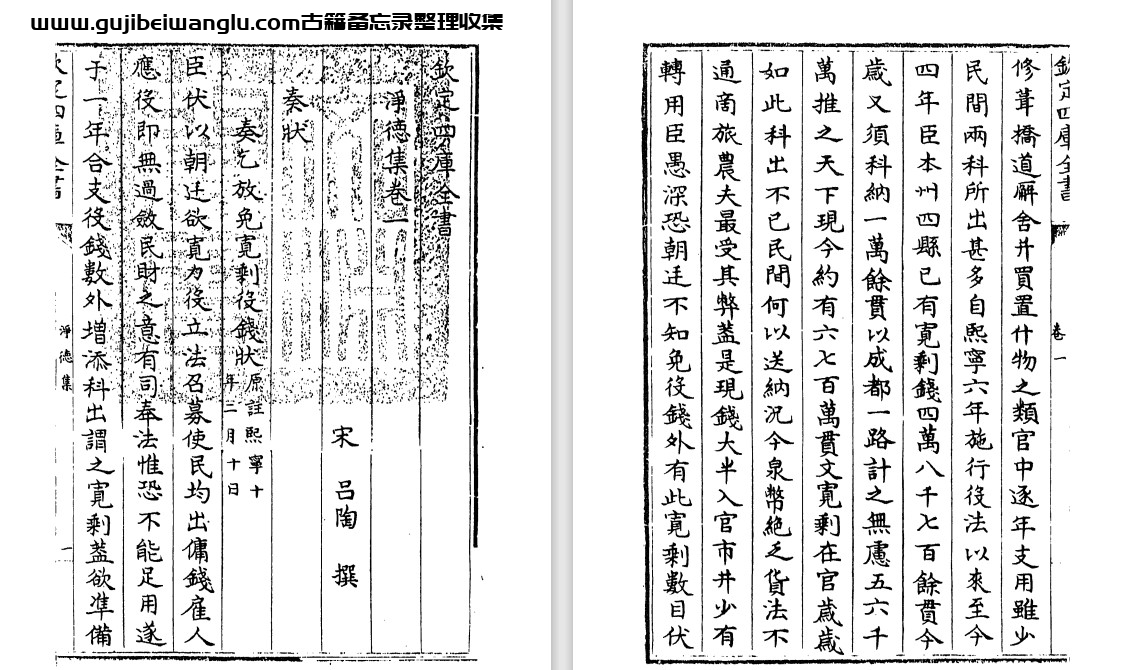 www.gujibeiwanglu.com古籍备忘录整理收集
欽定四庫全書
淨德集卷一
宋 吕陶 撰
奏狀
奏乞放免寛剩役錢狀原註熙寧十
年二月十日
臣伏以朝廷欲寛力役立法召募使民均出傭錢雇人
應役即無過斂民財之意有司奉法惟恐不能足用遂
于一年合支役錢數外增添科出謂之寛剩葢欲凖備
淨德集
一
欽定四庫全書
卷一
修葺橋道廨舍并買置什物之類官中逐年支用雖少
民間兩科所出甚多自熙寧六年施行役法以來至今
四年臣本州四縣已有寛剩錢四萬八千七百餘貫今
歲又須科納一萬餘貫以成都一路計之無慮五六千
萬推之天下現今約有六七百萬貫文寛剩在官歲歲
如此科出不已民間何以送納况今泉幣絶乏貨法不
通商旅農夫最受其弊葢是現錢大半入官市井少有
轉用臣愚深恐朝廷不知免役錢外有此寛剩數目伏